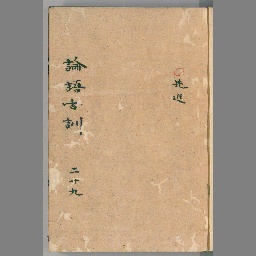 先進
論語古訓
二十九